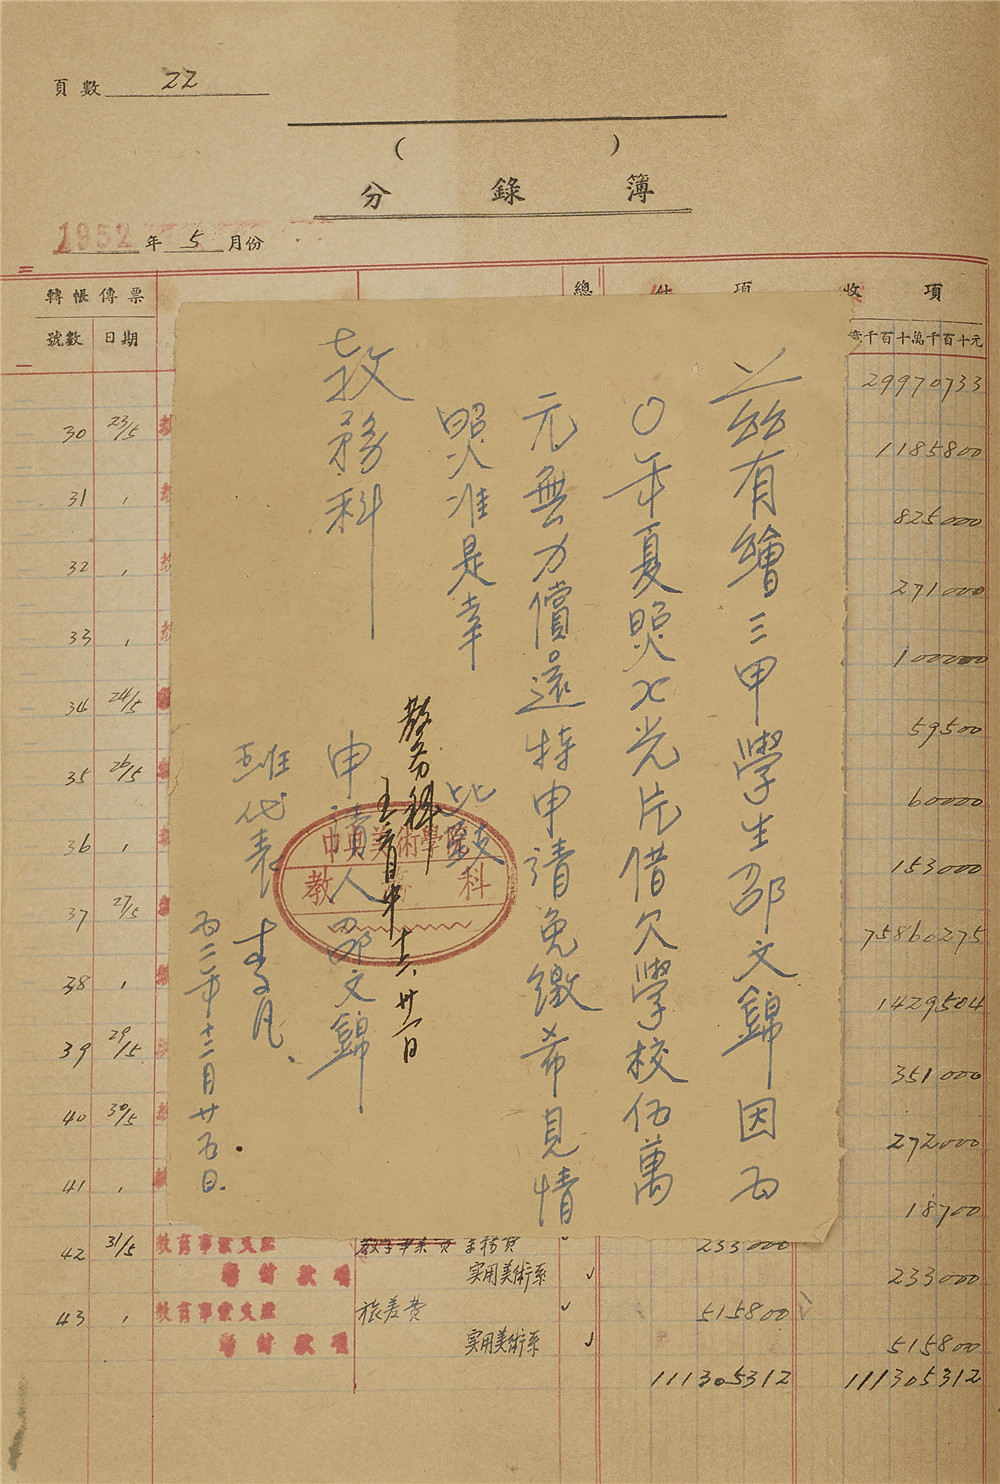 頁數 22
( )
分錄簿
1952年5月份
轉帳傳票
總
付項
收項
號數 日期
千百十萬千百十元
29970733
30 23/5
1185800
31 ,
825000
32 ,
271000
33 ,
100000
34 24/5
59500
35 26/5
60000
36 ,
153000
37 27/5
75860275
38 ,
1429504
39 29/5
351000
40 30/5
272000
41 ,
18700
42 31/5 教育事業支出 233000
暫付款項 实用美術系 233000
43 , 教育事業支出 旅差費 515800
暫付款項 实用美術系 515800
111305312 111305312
茲有繪三甲學生邵文錦因五
〇年夏照X光片借欠學校伍萬
元無力償還特申請免繳希見情
照准是幸 此致
教務科
申請人邵文錦
班代表
五二年十二月廿五日.
教務科
十二、廿六日
美術學院
教務科